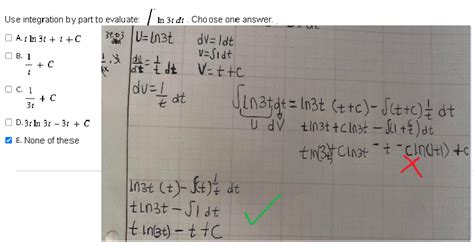 Use integration by part to evaluate: ∫ ln 3t dt . Choose one answer.
A. t ln 3t + t + C
B. 1/t + C
C. 1/3t + C
D. 3t ln 3t − 3t + C
E. None of these
U=ln3t dV=1dt
V=∫1dt
du/dt = 1/t dt V=t+C
dU=1/t dt
∫ln3t dt = ln3t (t+c) - ∫(t+c) 1/t dt
U dV
tln3t+cln3t - ∫(1+c/t) dt
tln(3t)+cln3t - t - cln(|t|) +c
ln3t (t) - ∫(t) 1/t dt
tln3t - ∫1 dt
t ln(3t) - t +C